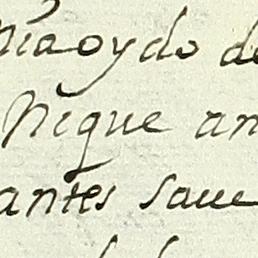 oydo de
Nique an
antes saue